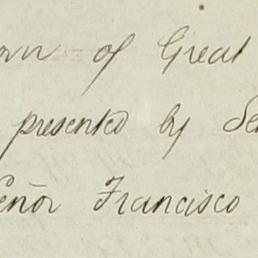 own of Great
presented by Se
eñor Francisco